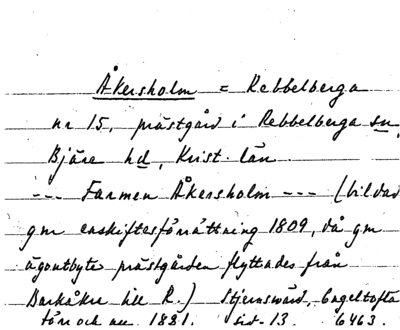 Åkersholm = Rebbelberga
nr 15, prästgård i Rebbelberga sn,
Bjäre hd, Krist. län
--- Farmen Åkersholm --- (bildad
gm enskiftesförrättning 1809, då gm
ägoutbyte prästgården flyttades från
Barkåkra till R.) Stjernswärd, Engeltofta
förr och nu 1881. sid. 13. 6463.